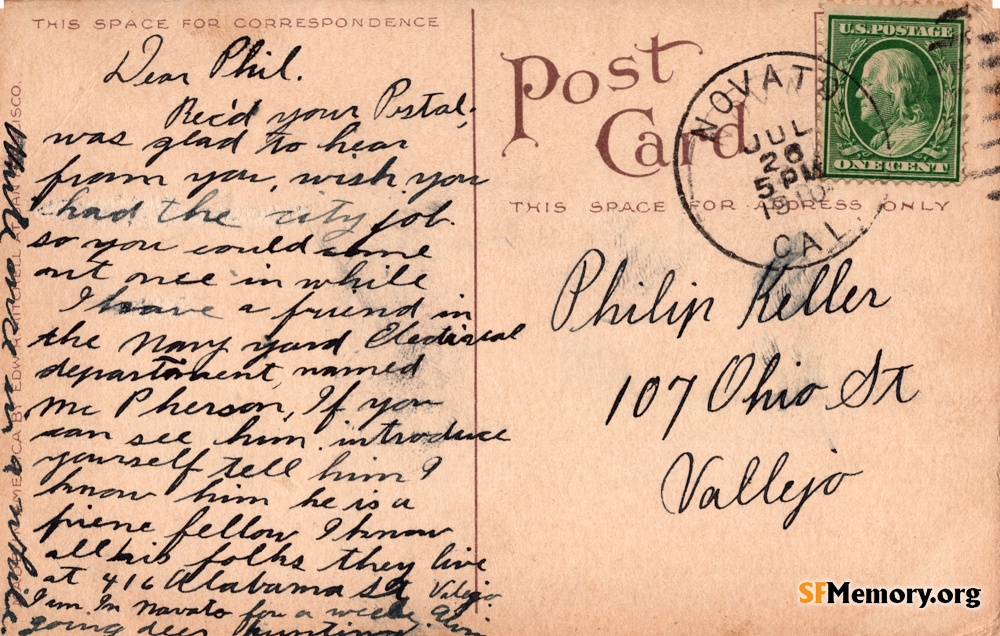 THIS SPACE FOR CORRESPONDENCE
Dear Phil.
Rec'd your Postal,
was glad to hear
from you, wish you
had the city job
so you could come
out once in while
I have a friend in
the Navy yard Electrical
department, named
Mc Pherson, If you
can see him introduce
yourself tell him I
know him he is a
friene fellow I know
all his folks they live
at 416 Alabama St Vallejo
I am In Navato for a week, am
going deer hunting
Write once in a while
Post
Card
THIS SPACE FOR ADDRESS ONLY
NOVATO
JUL
26
5 PM
1910
CAL
U.S. POSTAGE
ONE CENT
Philip Keller
107 Ohio St
Vallejo
SFMemory.org